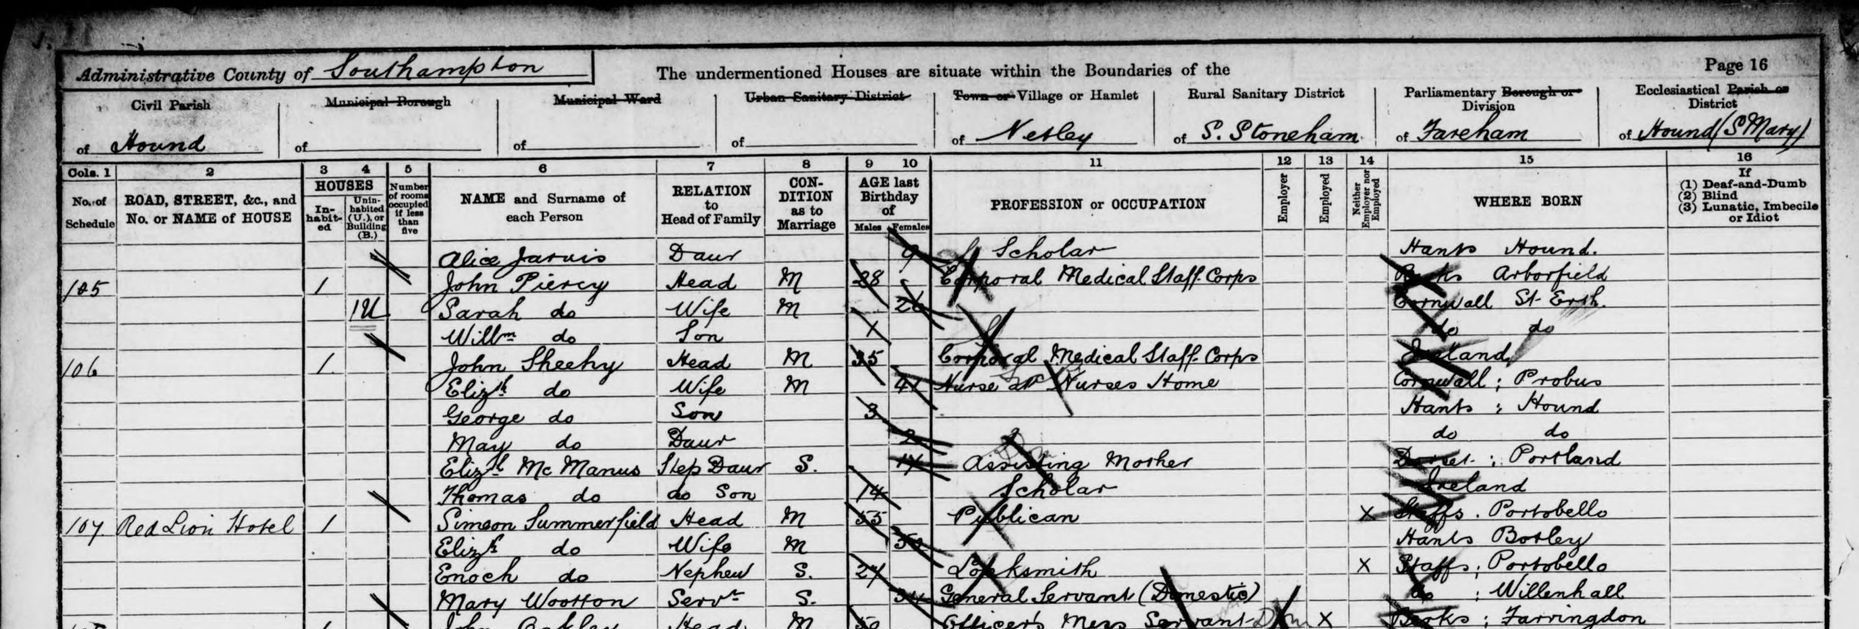 Administrative County of Southampton The undermentioned Houses are situate within the Boundaries of the Page 16
Civil Parish Municipal Borough Municipal Ward Urban Sanitary District Town or Village or Hamlet Rural Sanitary District Parliamentary Borough or Division Ecclesiastical Parish or District
of Hound of of of of Netley of S. Stoneham of Fareham of Hound (S Mary)
Cols. 1 2 3 4 5 6 7 8 9 10 11 12 13 14 15 16
No. of Schedule ROAD, STREET, &c., and No. or NAME of HOUSE HOUSES Inhabited Uninhabited (U.), or Building (B.) Number of rooms occupied if less than five NAME and Surname of each Person RELATION to Head of Family CONDITION as to Marriage AGE last Birthday of Males Females PROFESSION or OCCUPATION Employer Employed Neither Employer nor Employed WHERE BORN If (1) Deaf-and-Dumb (2) Blind (3) Lunatic, Imbecile or Idiot
Alice Jarvis Daur 9 Scholar Hants Hound.
105 1 John Piercy Head M 28 Corporal Medical Staff Corps Berks Arborfield
1U Sarah do Wife M 26 Cornwall St Erth.
Willm do Son 1 do do
106 1 John Sheehy Head M 35 Corporal Medical Staff Corps Ireland
Elizh do Wife M 41 Nurse at Nurses Home Cornwall ; Probus
George do Son 3 Hants ; Hound
May do Daur 2 do do
Elizh McManus Step Daur S. 17 Assisting Mother Dorset ; Portland
Thomas do do Son 14 Scholar Ireland
107 Red Lion Hotel 1 Simeon Summerfield Head M 55 Publican x Staffs . Portobello
Elizh do Wife M 50 Hants Botley
Enoch do Nephew S. 27 Locksmith x Staffs ; Portobello
Mary Wootton Servt S. General Servant (Domestic) do ; Willenhall
John Oakley Head M 50 Officers Mess Servant x Berks ; Farringdon